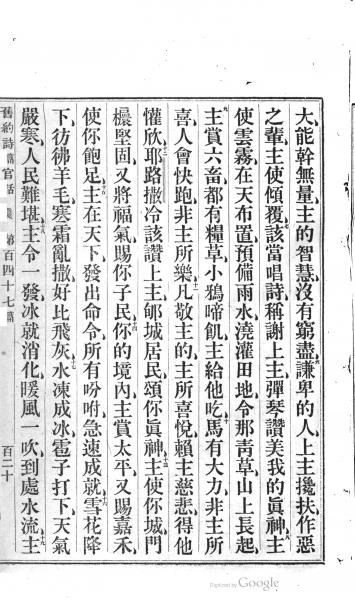 大能幹無量主的智慧沒有窮盡謙卑的人上主攙扶作惡
之輩主使傾覆該當唱詩稱謝上主彈琴讚美我的眞神主
使雲霧在天布置預備雨水澆灌田地令那青草山上長起
主賞六畜都有糧草小鴉啼飢主給他吃馬有大力非主所
喜人會快跑非主所樂凡敬主的主所喜悅賴主慈悲得他
懽欣耶路撒冷該讚上主郇城居民頌你眞神主使你城門
櫃堅固又將福氣賜你子民你的境內主賞太平又賜嘉禾
使你飽足主在天下發出命令所有吩咐急速成就雪花降
下彷彿羊毛寒霜亂撒好比飛灰水凍成冰雹子打下天氣
嚴寒人民難堪主令一發冰就消化暖風一吹到處水流主
舊約詩篇官話 第百四十七篇 百二十
Digitized by Google